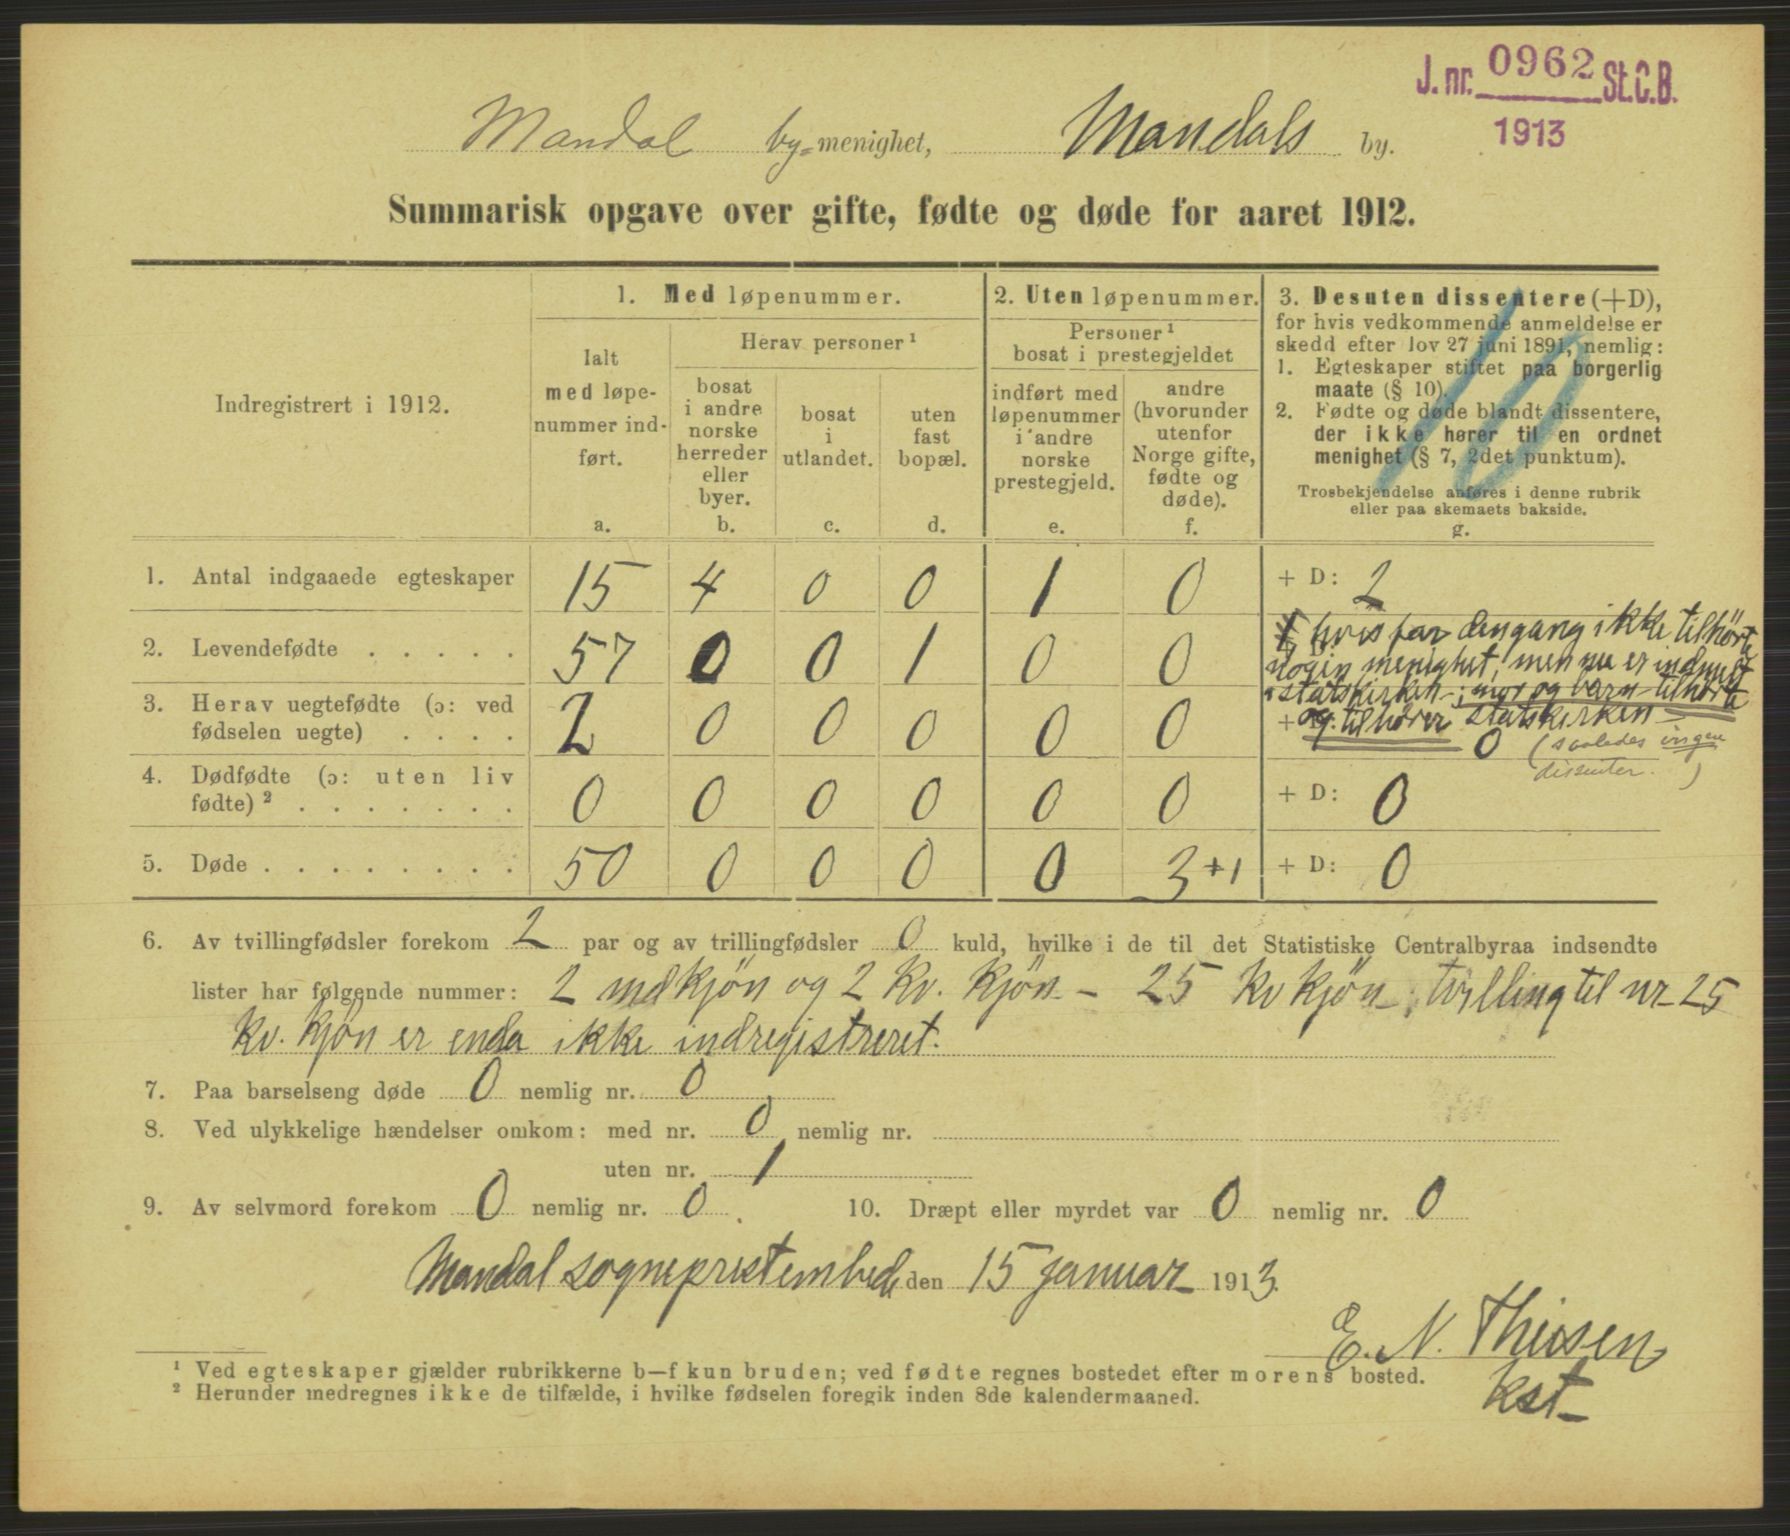 J. nr. 0962 St.C.B.
1913
Mandal by-menighet, Mandals by.
Summarisk opgave over gifte, fødte og døde for aaret 1912.
Indregistrert i 1912.
1. Med løpenummer.
Ialt
med løpe-
nummer ind-
ført.
a.
Herav personer ¹
bosat
i andre
norske
herreder
eller
byer.
b.
bosat
i
utlandet.
c.
uten
fast
bopæl.
d.
2. Uten løpenummer.
Personer ¹
bosat i prestegjeldet
indført med
løpenummer
i andre
norske
prestegjeld.
e.
andre
(hvorunder
utenfor
Norge gifte,
fødte og
døde).
f.
3. Desuten dissentere (+D),
for hvis vedkommende anmeldelse er
skedd efter lov 27 juni 1891, nemlig:
1. Egteskaper stiftet paa borgerlig
maate (§ 10).
2. Fødte og døde blandt dissentere,
der ikke hører til en ordnet
menighet (§ 7, 2det punktum).
Trosbekjendelse anføres i denne rubrik
eller paa skemaets bakside.
g.
10
1. Antal indgaaede egteskaper 15 4 0 0 1 0 + D: 2
2. Levendefødte . . . . . 57 0 0 1 0 0
1 hvis far dengang ikke tilhörte
nogen menighet, men nu er indmeldt
i statskirken; mor og barn tilhörte
og tilhører statskirken
3. Herav uegtefødte (ɔ: ved
fødselen uegte) . . . . 2 0 0 0 0 0 + 0
(saaledes ingen
dissenter.)
4. Dødfødte (ɔ: uten liv
fødte) ² . . . . . . . 0 0 0 0 0 0 + D: 0
5. Døde . . . . . . . . 50 0 0 0 0 3+1 + D: 0
6. Av tvillingfødsler forekom 2 par og av trillingfødsler 0 kuld, hvilke i de til det Statistiske Centralbyraa indsendte
lister har følgende nummer: 2 mdkjön og 2 kv. kjön - 25 kv kjön; tvilling til nr 25
kv. kjön er enda ikke indregistreret.
7. Paa barselseng døde 0 nemlig nr. 0
8. Ved ulykkelige hændelser omkom: med nr. 0 nemlig nr.
uten nr. 1
9. Av selvmord forekom 0 nemlig nr. 0. 10. Dræpt eller myrdet var 0 nemlig nr. 0
Mandal sogneprestembede den 15 januar 1913.
E. N. Thiisen
kst.
¹ Ved egteskaper gjælder rubrikkerne b—f kun bruden; ved fødte regnes bostedet efter morens bosted.
² Herunder medregnes ikke de tilfælde, i hvilke fødselen foregik inden 8de kalendermaaned.